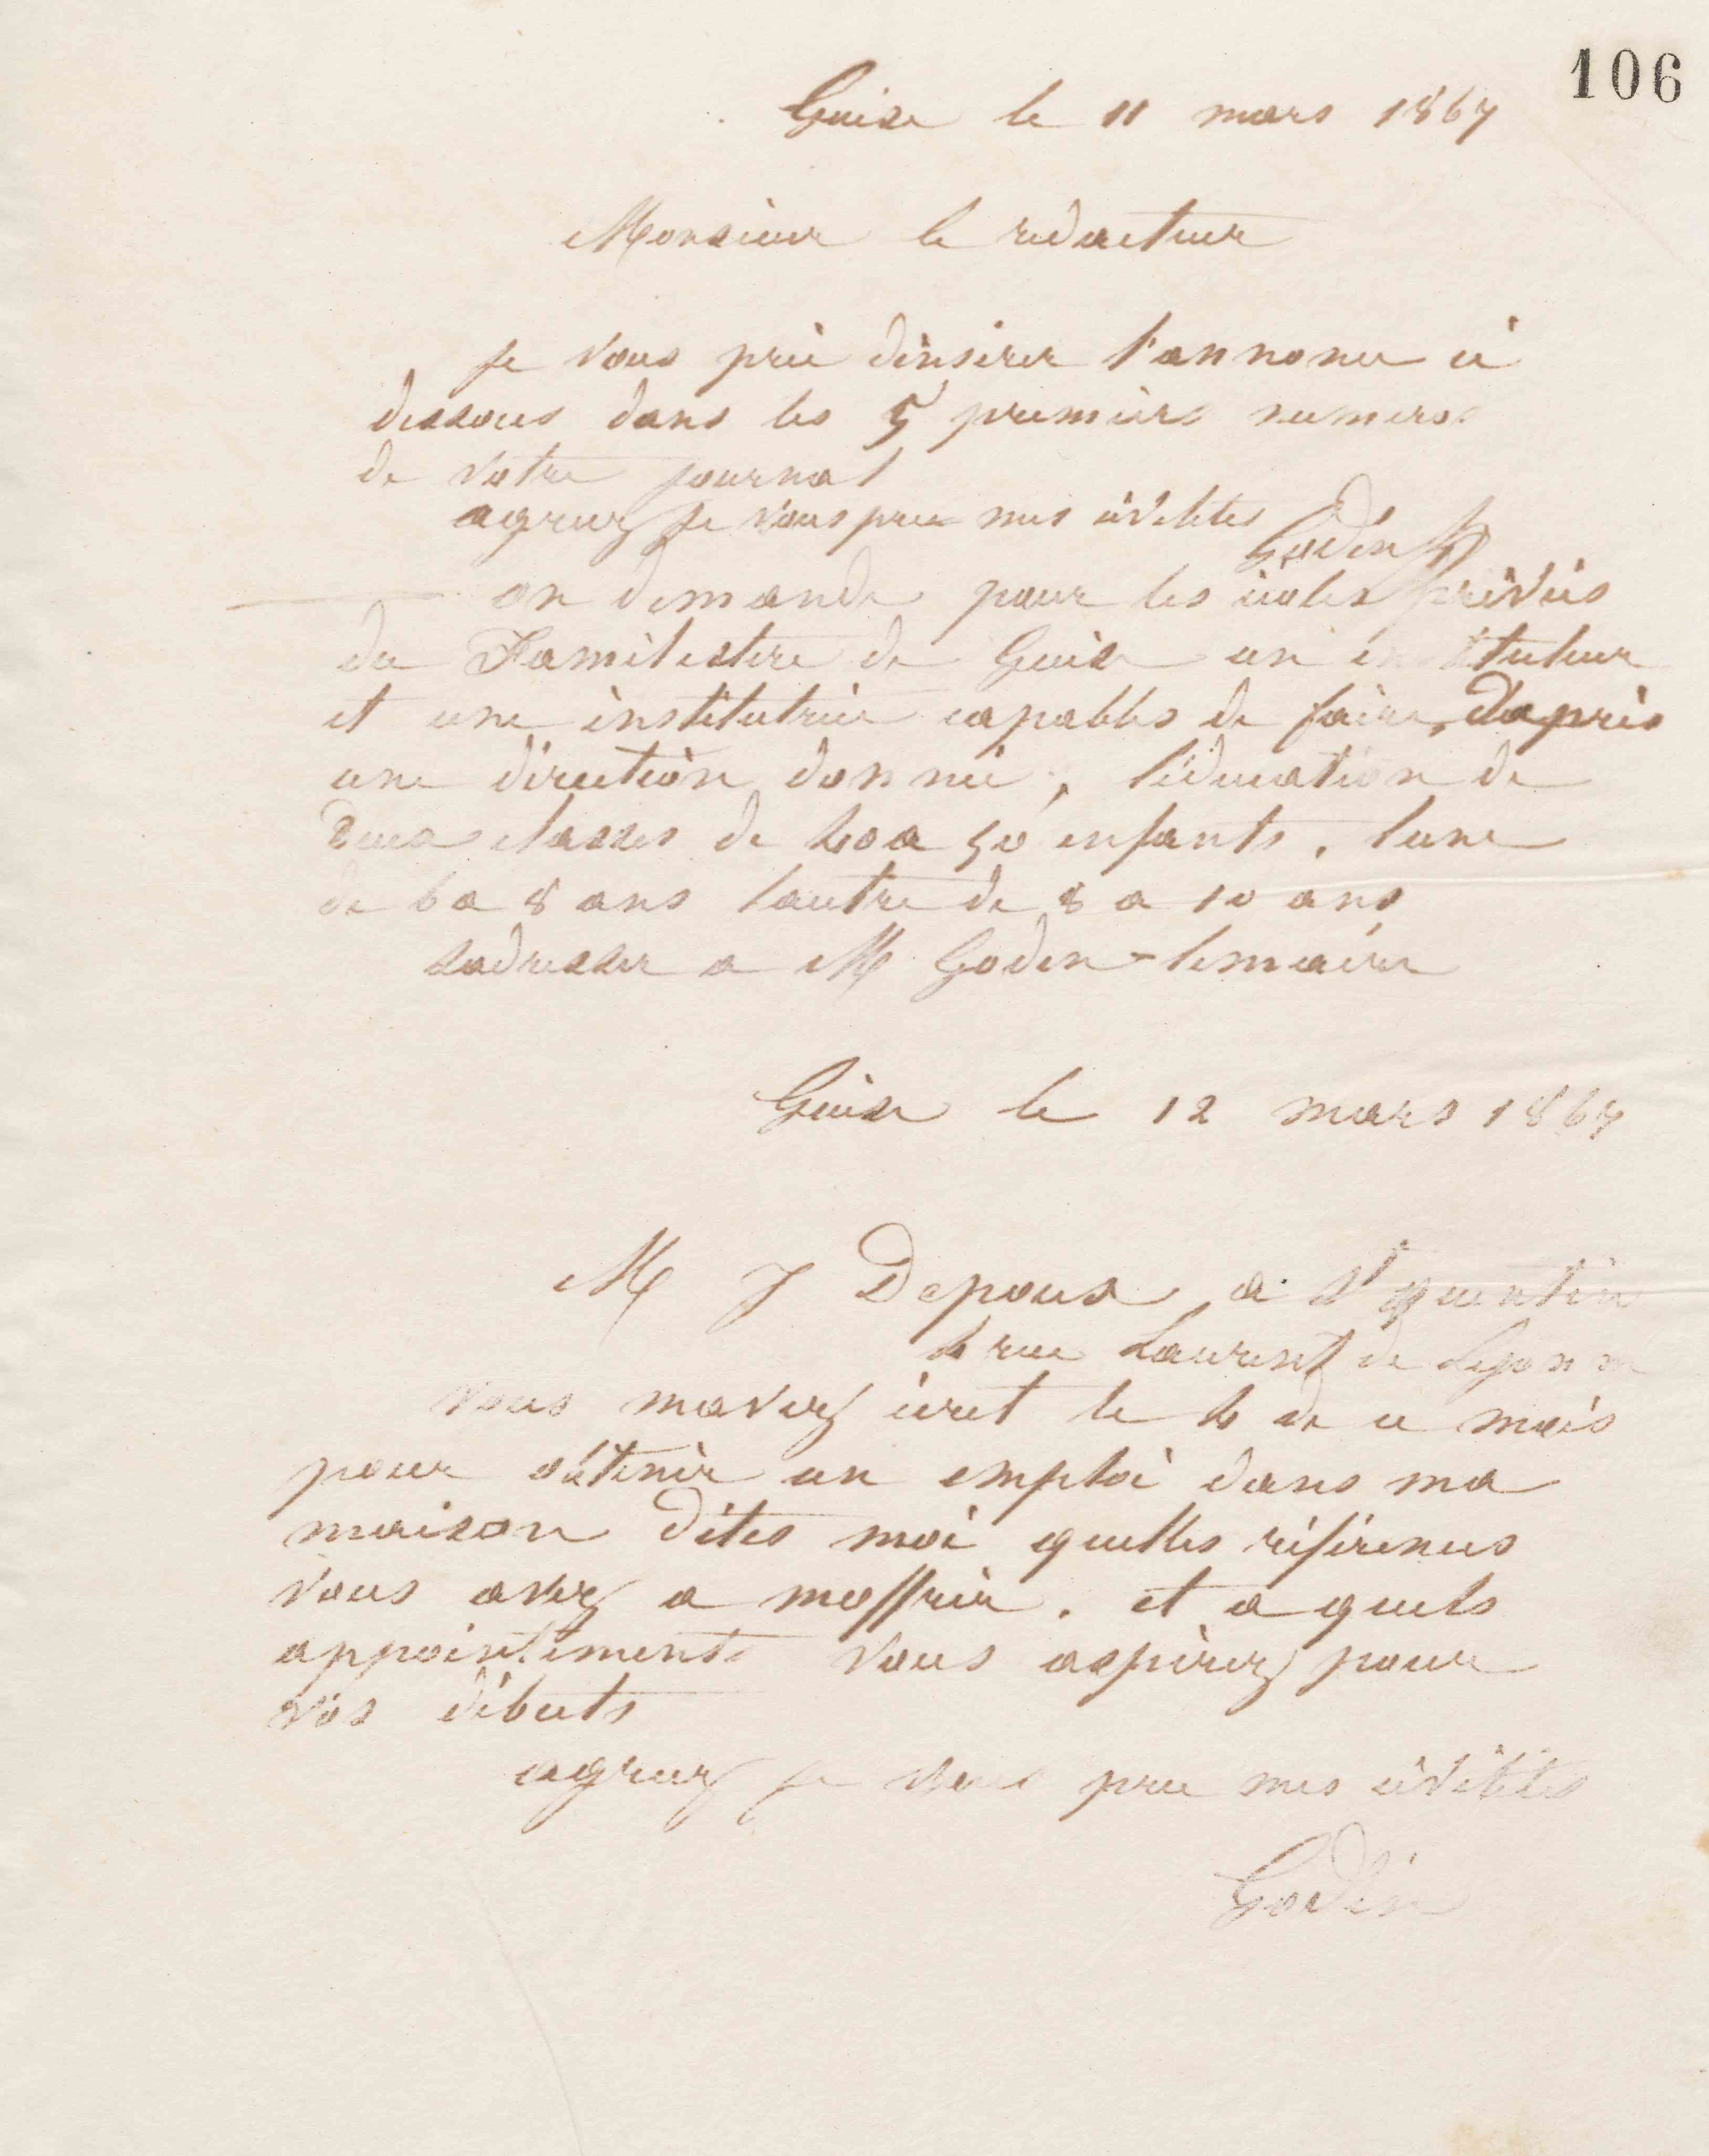 106
Guise le 11 mars 1867
Monsieur le rédacteur
je vous prie d'insérer l'annonce ci
dessous dans les 5 premiers numeros
de votre journal
agreez je vous prie mes civilités
Godin
on demande pour les écoles privées
du Familistere de Guise un instituteur
et une institutrice capables de faire, daprès
une direction donnée, l'éducation de
deux classes de 40 a 50 enfants, lune
de 6 a 8 ans lautre de 8 a 10 ans
sadresser a M Godin-lemaire
Guise le 12 mars 1867
M J Depoux a St quentin
4 rue Laurent de Lyonne
vous mavez écrit le 4 de ce mois
pour obtenir un emploi dans ma
maison dites moi quelles références
vous avez a moffrir. et a quels
appointements vous aspirez pour
vos débuts
agreez je vous prie mes civilités
Godin